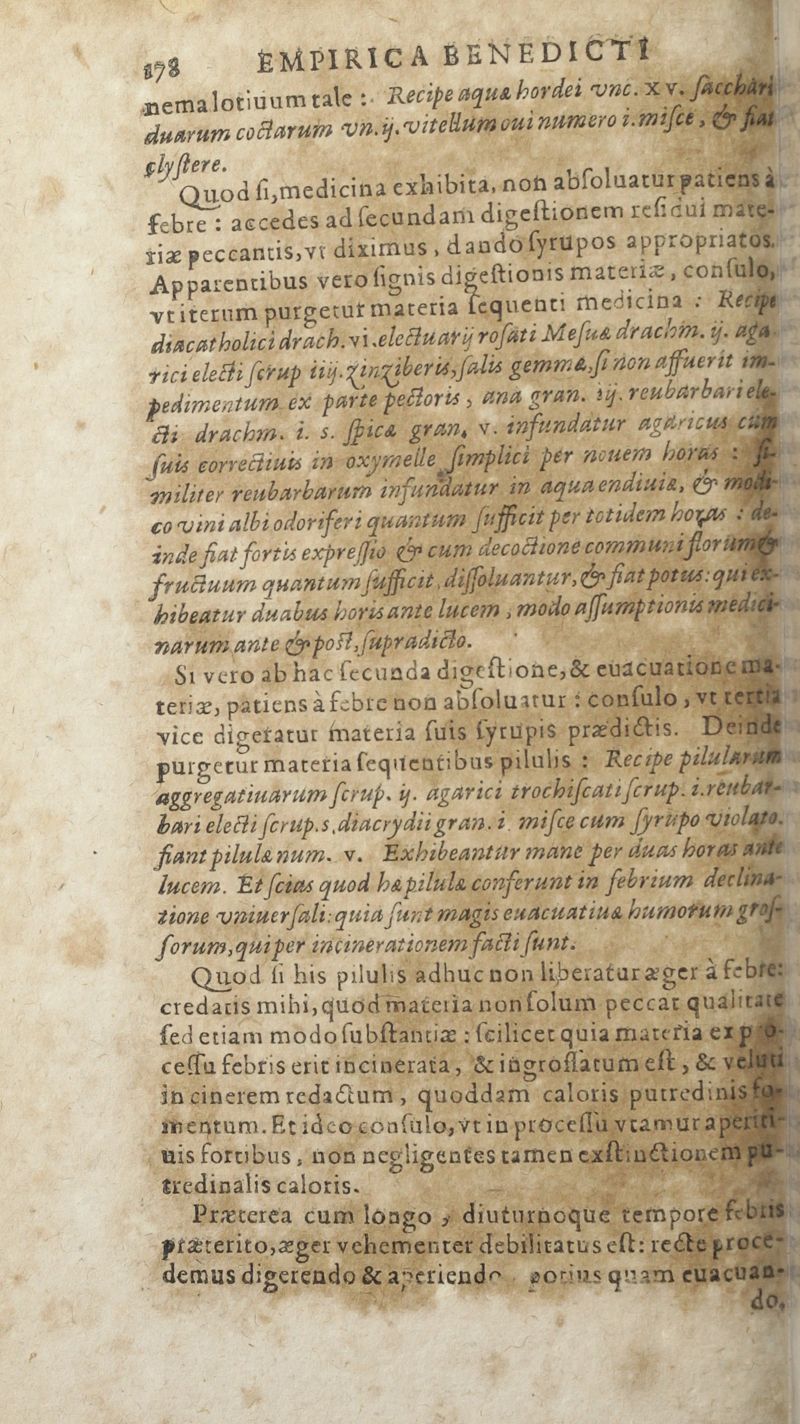 178 EMPIRICA BENEDICTI
nemalotiuum tale : Recipe aquæ hordei vnc. xv. sacchari
duarum coctarum vn.ij. vitellum oui numero i. misce, & fiat
clystere.
Quod si, medicina exhibita, non absoluatur patiens à
febre : accedes ad secundam digestionem residui mate-
riæ peccantis, vt diximus, dando syrupos appropriatos.
Apparentibus vero signis digestionis materiæ, consulo,
vt iterum purgetur materia sequenti medicina : Recipe
diacatholici drach. vi. electuarij rosati Mesuæ drachm. ij. aga
rici electi scrup iiij. zinziberis, salis gemmæ, si non affuerit im-
pedimentum ex parte pectoris, ana gran. iij. reubarbari ele-
cti drachm. i. s. spicæ gran. v. infundatur agaricus cum
suis correctiuis in oxymelle simplici per nouem horas : si-
militer reubarbarum infundatur in aqua endiuiæ, & modi-
co vini albi odoriferi quantum sufficit per totidem horas : de-
inde fiat fortis expressio & cum decoctione communi florum &
fructuum quantum sufficit, dissoluantur, & fiat potus: qui ex-
hibeatur duabus horis ante lucem, modo assumptionis medici-
narum ante & post, supradicto.
Si vero ab hac secunda digestione, & euacuatione ma-
teriæ, patiens à febre non absoluatur : consulo, vt tertia
vice digeratur materia suis syrupis prædictis. Deinde
purgetur materia sequentibus pilulis : Recipe pilularum
aggregatiuarum scrup. ij. agarici trochiscati scrup. i. reubar-
bari electi scrup. s. diacrydii gran. i. misce cum syrupo violato.
fiant pilulæ num. v. Exhibeantur mane per duas horas ante
lucem. Et scias quod hæ pilulæ conferunt in febrium declina-
tione vniuersali: quia sunt magis euacuatiuæ humorum gros-
sorum, qui per incinerationem facti sunt.
Quod si his pilulis adhuc non liberatur æger à febre:
credatis mihi, quod materia non solum peccat qualitate
sed etiam modo substantiæ : scilicet quia materia ex pro-
cessu febris erit incinerata, & ingrossatum est, & veluti
in cinerem redactum, quoddam caloris putredinis fo-
mentum. Et ideo consulo, vt in processu vtamur aperiti-
uis fortibus, non negligentes tamen exstinctionem pu-
tredinalis caloris.
Præterea cum longo, diuturnoque tempore febris
præterito, æger vehementer debilitatus est: recte proce-
demus digerendo & aperiendo, potius quam euacuan-
do,